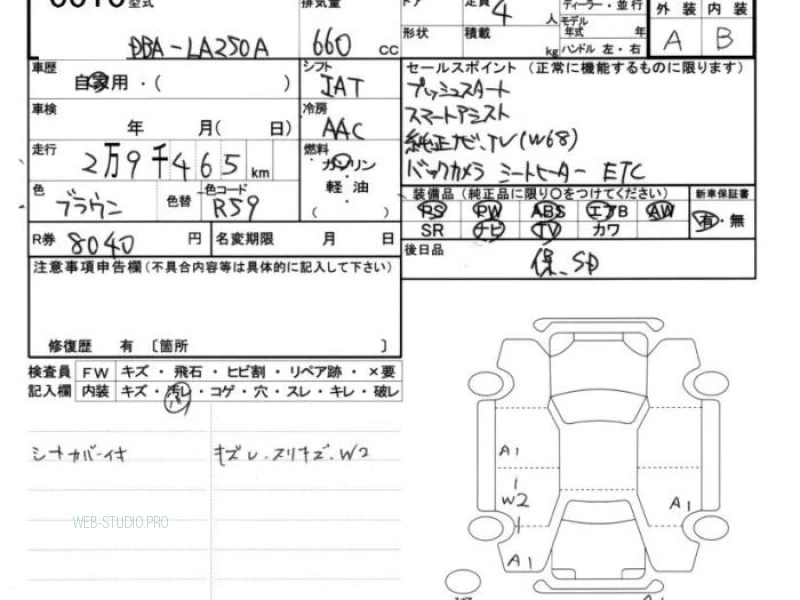 型式 排気量 ドア 定員 4 人 ディーラー・並行 外装 内装
DBA-LA250A 660 cc 形状 積載 kg モデル年式 年 ハンドル 左・右 A B
車歴 自家用・( ) シフト IAT セールスポイント (正常に機能するものに限ります)
プッシュスタート
スマートアシスト
車検 年 月( 日) 冷房 AAC 純正ナビ、TV(W68)
走行 2万9千465km 燃料 ガソリン バックカメラ シートヒーター ETC
軽油
( )
色 ブラウン 色替 色コード R59 装備品(純正品に限り〇をつけてください) 新車保証書
PS PW ABS エアB AW 有・無
SR ナビ TV カワ
R券 8040 円 名変期限 月 日 後日品 保、SD
注意事項申告欄(不具合内容等は具体的に記入して下さい)
修復歴 有 〔箇所 〕
検査員 FW キズ・飛石・ヒビ割・リペア跡・×要
記入欄 内装 キズ・汚レ・コゲ・穴・スレ・キレ・破レ
シートカバー付 キズレ、スリキズ、W2
A1
W2
A1
A1
WEB-STUDIO.PRO